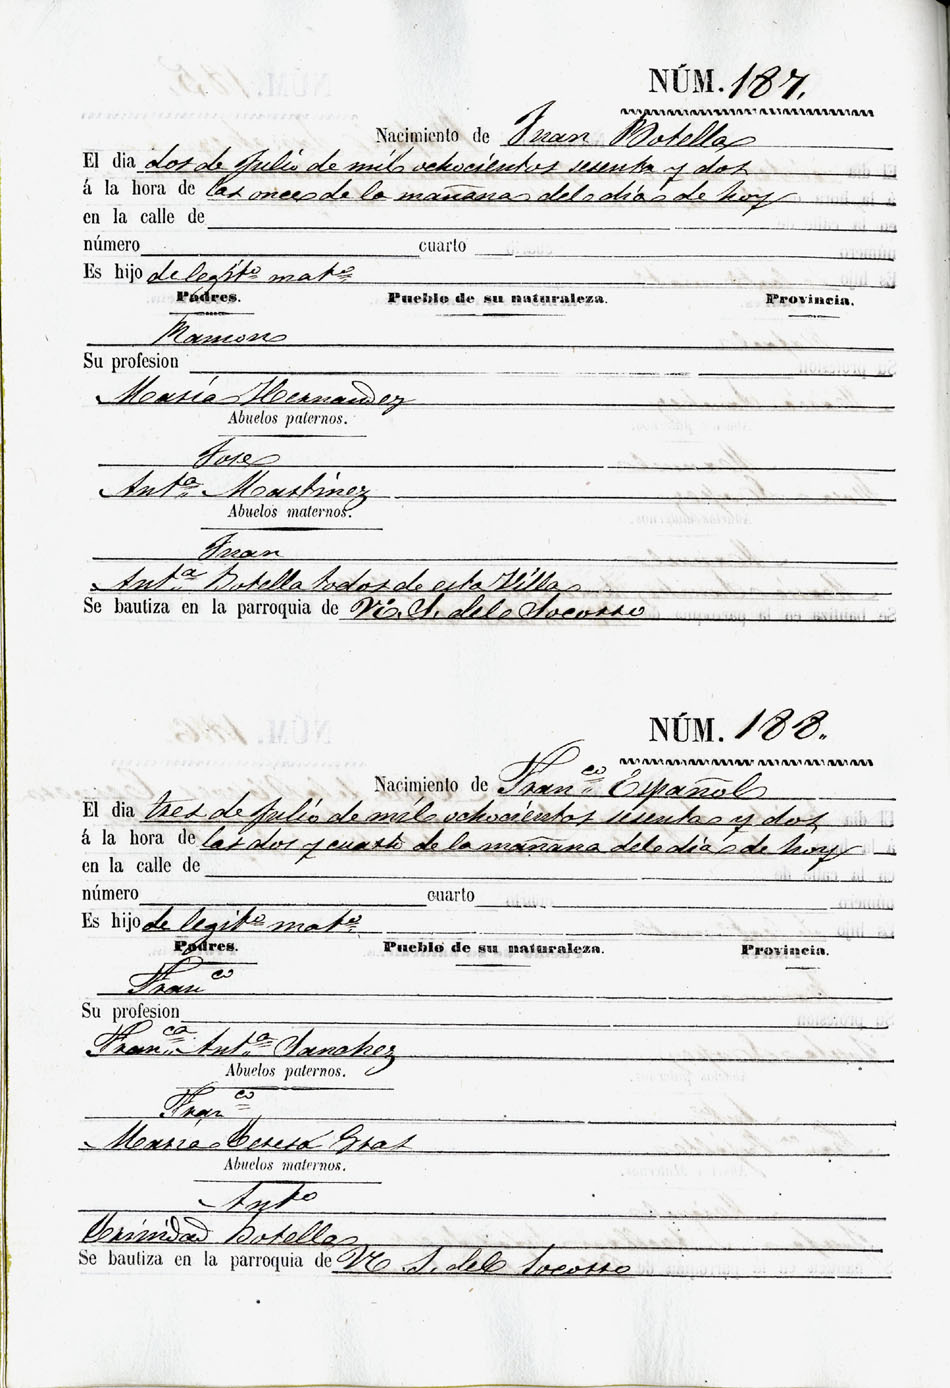 NÚM. 187.
Nacimiento de Juan Botella
El dia dos de Julio de mil ochocientos sesenta y dos
á la hora de las once de la mañana del dia de hoy
en la calle de
número cuarto
Es hijo de legitº matº
Padres. Pueblo de su naturaleza. Provincia.
Ramon
Su profesion
Maria Hernandez
Abuelos paternos.
Jose
Antª Martinez
Abuelos maternos.
Juan
Antª Botella todos de esta Villa
Se bautiza en la parroquia de N. S. del Socorro
NÚM. 188.
Nacimiento de Franco Español
El dia tres de Julio de mil ochocientos sesenta y dos
á la hora de las dos y cuarto de la mañana del dia de hoy
en la calle de
número cuarto
Es hijo de legitº matº
Padres. Pueblo de su naturaleza. Provincia.
Franco
Su profesion
Franca Antª Sanchez
Abuelos paternos.
Franco
Maria Teresa Gras
Abuelos maternos.
Antº
Trinidad Botella
Se bautiza en la parroquia de N. S. del Socorro